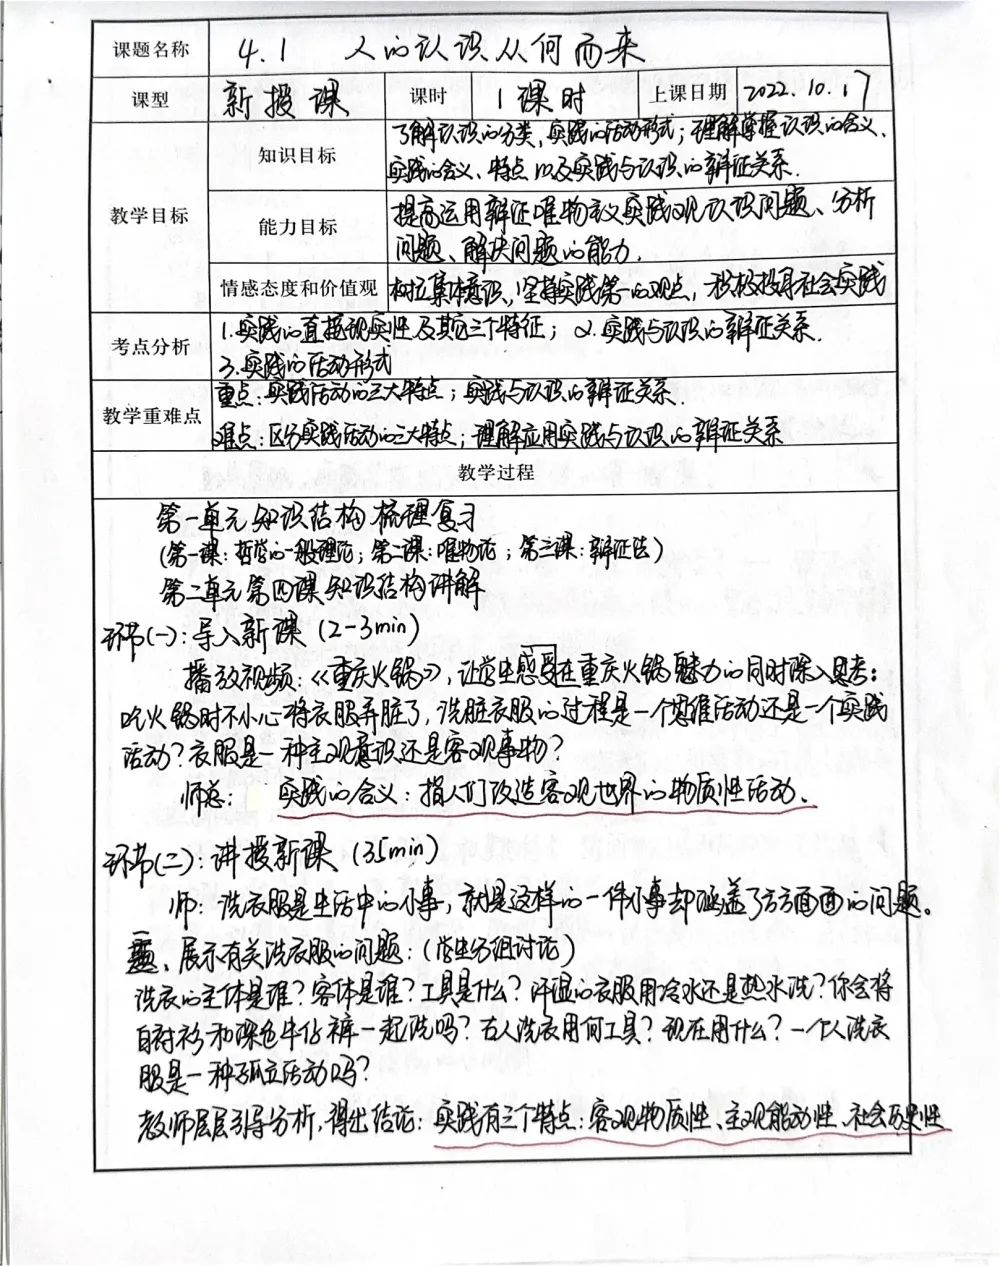 课题名称 4.1 人的认识从何而来
课型 新授课 课时 1课时 上课日期 2022.10.17
教学目标
知识目标
了解认识的分类,实践的活动形式;理解掌握认识的含义、
实践的含义、特点以及实践与认识的辩证关系.
能力目标
提高运用辩证唯物主义实践观认识问题、分析
问题、解决问题的能力.
情感态度和价值观 树立集体意识,坚持实践第一的观点,积极投身社会实践
考点分析
1.实践的直接现实性及其它三个特征; 2.实践与认识的辩证关系.
3.实践的活动形式
教学重难点
重点:实践活动的三大特点;实践与认识的辩证关系.
难点:区分实践活动的三大特点;理解应用实践与认识的辩证关系
教学过程
第一单元知识结构梳理复习
(第一课:哲学的一般理论;第二课:唯物论;第三课:辩证法)
第二单元第四课知识结构讲解
环节(一):导入新课(2-3min)
播放视频:《重庆火锅》,让学生感受在重庆火锅魅力的同时深入思考:
吃火锅时不小心将衣服弄脏了,洗脏衣服的过程是一个思维活动还是一个实践
活动?衣服是一种主观意识还是客观事物?
师总: 实践的含义:指人们改造客观世界的物质性活动.
环节(二):讲授新课(35min)
师:洗衣服是生活中的小事,就是这样的一件小事却涵盖了方方面面的问题。
一、展示有关洗衣服的问题:(学生分组讨论)
洗衣的主体是谁?客体是谁?工具是什么?汗湿的衣服用冷水还是热水洗?你会将
白衬衫和深色牛仔裤一起洗吗?古人洗衣用何工具?现在用什么?一个人洗衣
服是一种孤立活动吗?
教师层层引导分析,得出结论:实践有三个特点:客观物质性、主观能动性、社会历史性